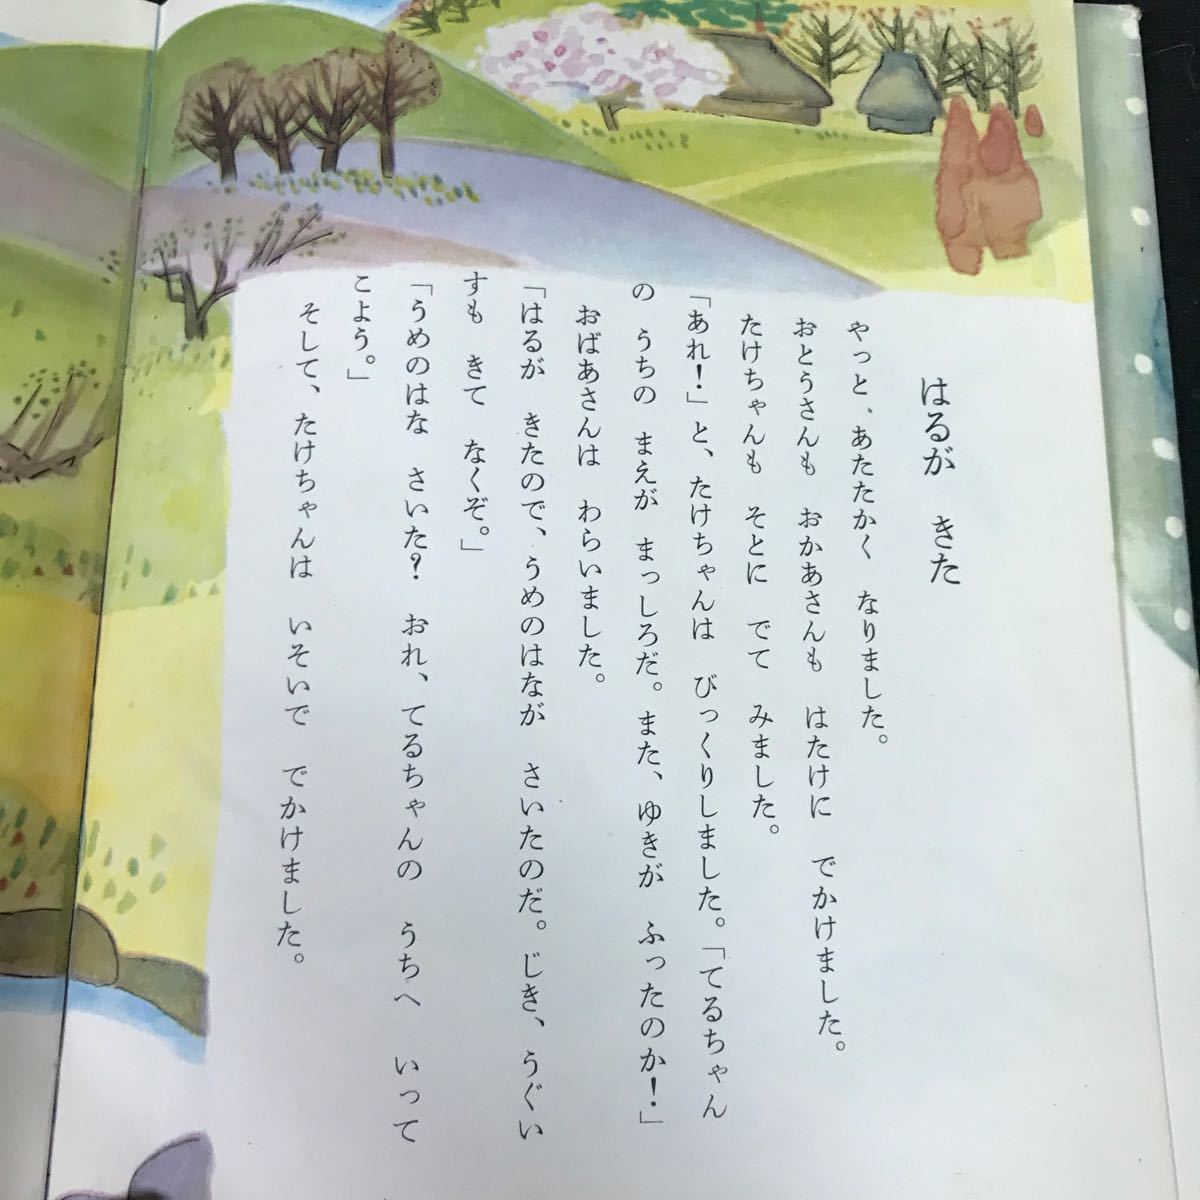 はるが きた
やっと、あたたかく なりました。
おとうさんも おかあさんも はたけに でかけました。
たけちゃんも そとに でて みました。
「あれ！」と、たけちゃんは びっくりしました。「てるちゃん
の うちの まえが まっしろだ。また、ゆきが ふったのか！」
おばあさんは わらいました。
「はるが きたので、うめのはなが さいたのだ。じき、うぐい
すも きて なくぞ。」
「うめのはな さいた？ おれ、てるちゃんの うちへ いって
こよう。」
そして、たけちゃんは いそいで でかけました。